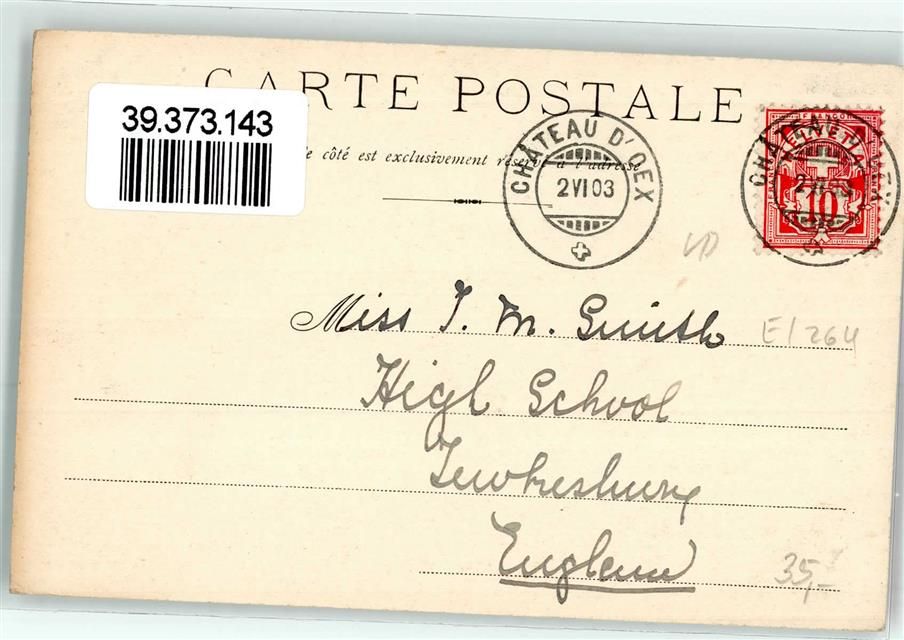 CARTE POSTALE
39.373.143
côté est exclusivement réservé à l'adresse
CHÂTEAU D'OEX
2 VI 03
CHÂTEAU D'OEX
HELVETIA
2 VI 03
10
Miss J. M. Smith
E/264
High School
Tewkesbury
England
35,-